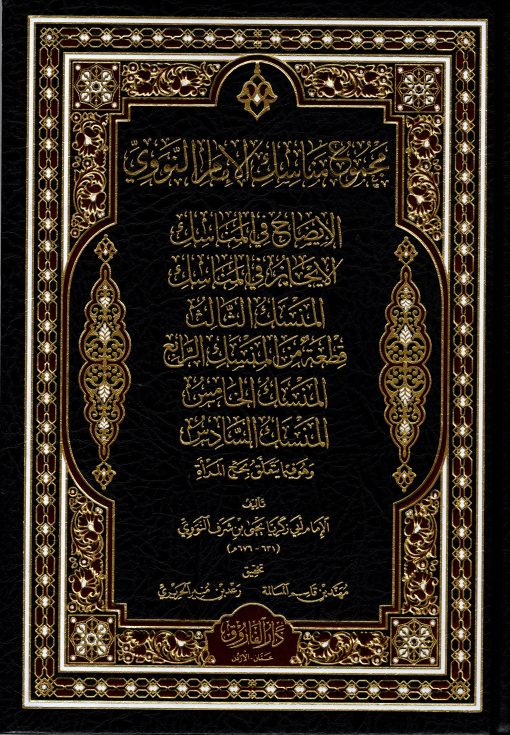 مجموع مناسك الإمام النووي
الإيضاح في المناسك
الإيجاز في المناسك
المنسك الثالث
قطعة من المنسك الرابع
المنسك الخامس
المنسك السادس
وهو فيما يتعلق بحج المرأة
تأليف
الإمام أبي زكريا يحيى بن شرف النووي
(٦٣١ - ٦٧٦ هـ)
تحقيق
مهند بن قاسم المسالمة رعد بن منير الحريري
دار الفاروق
عمان - الأردن